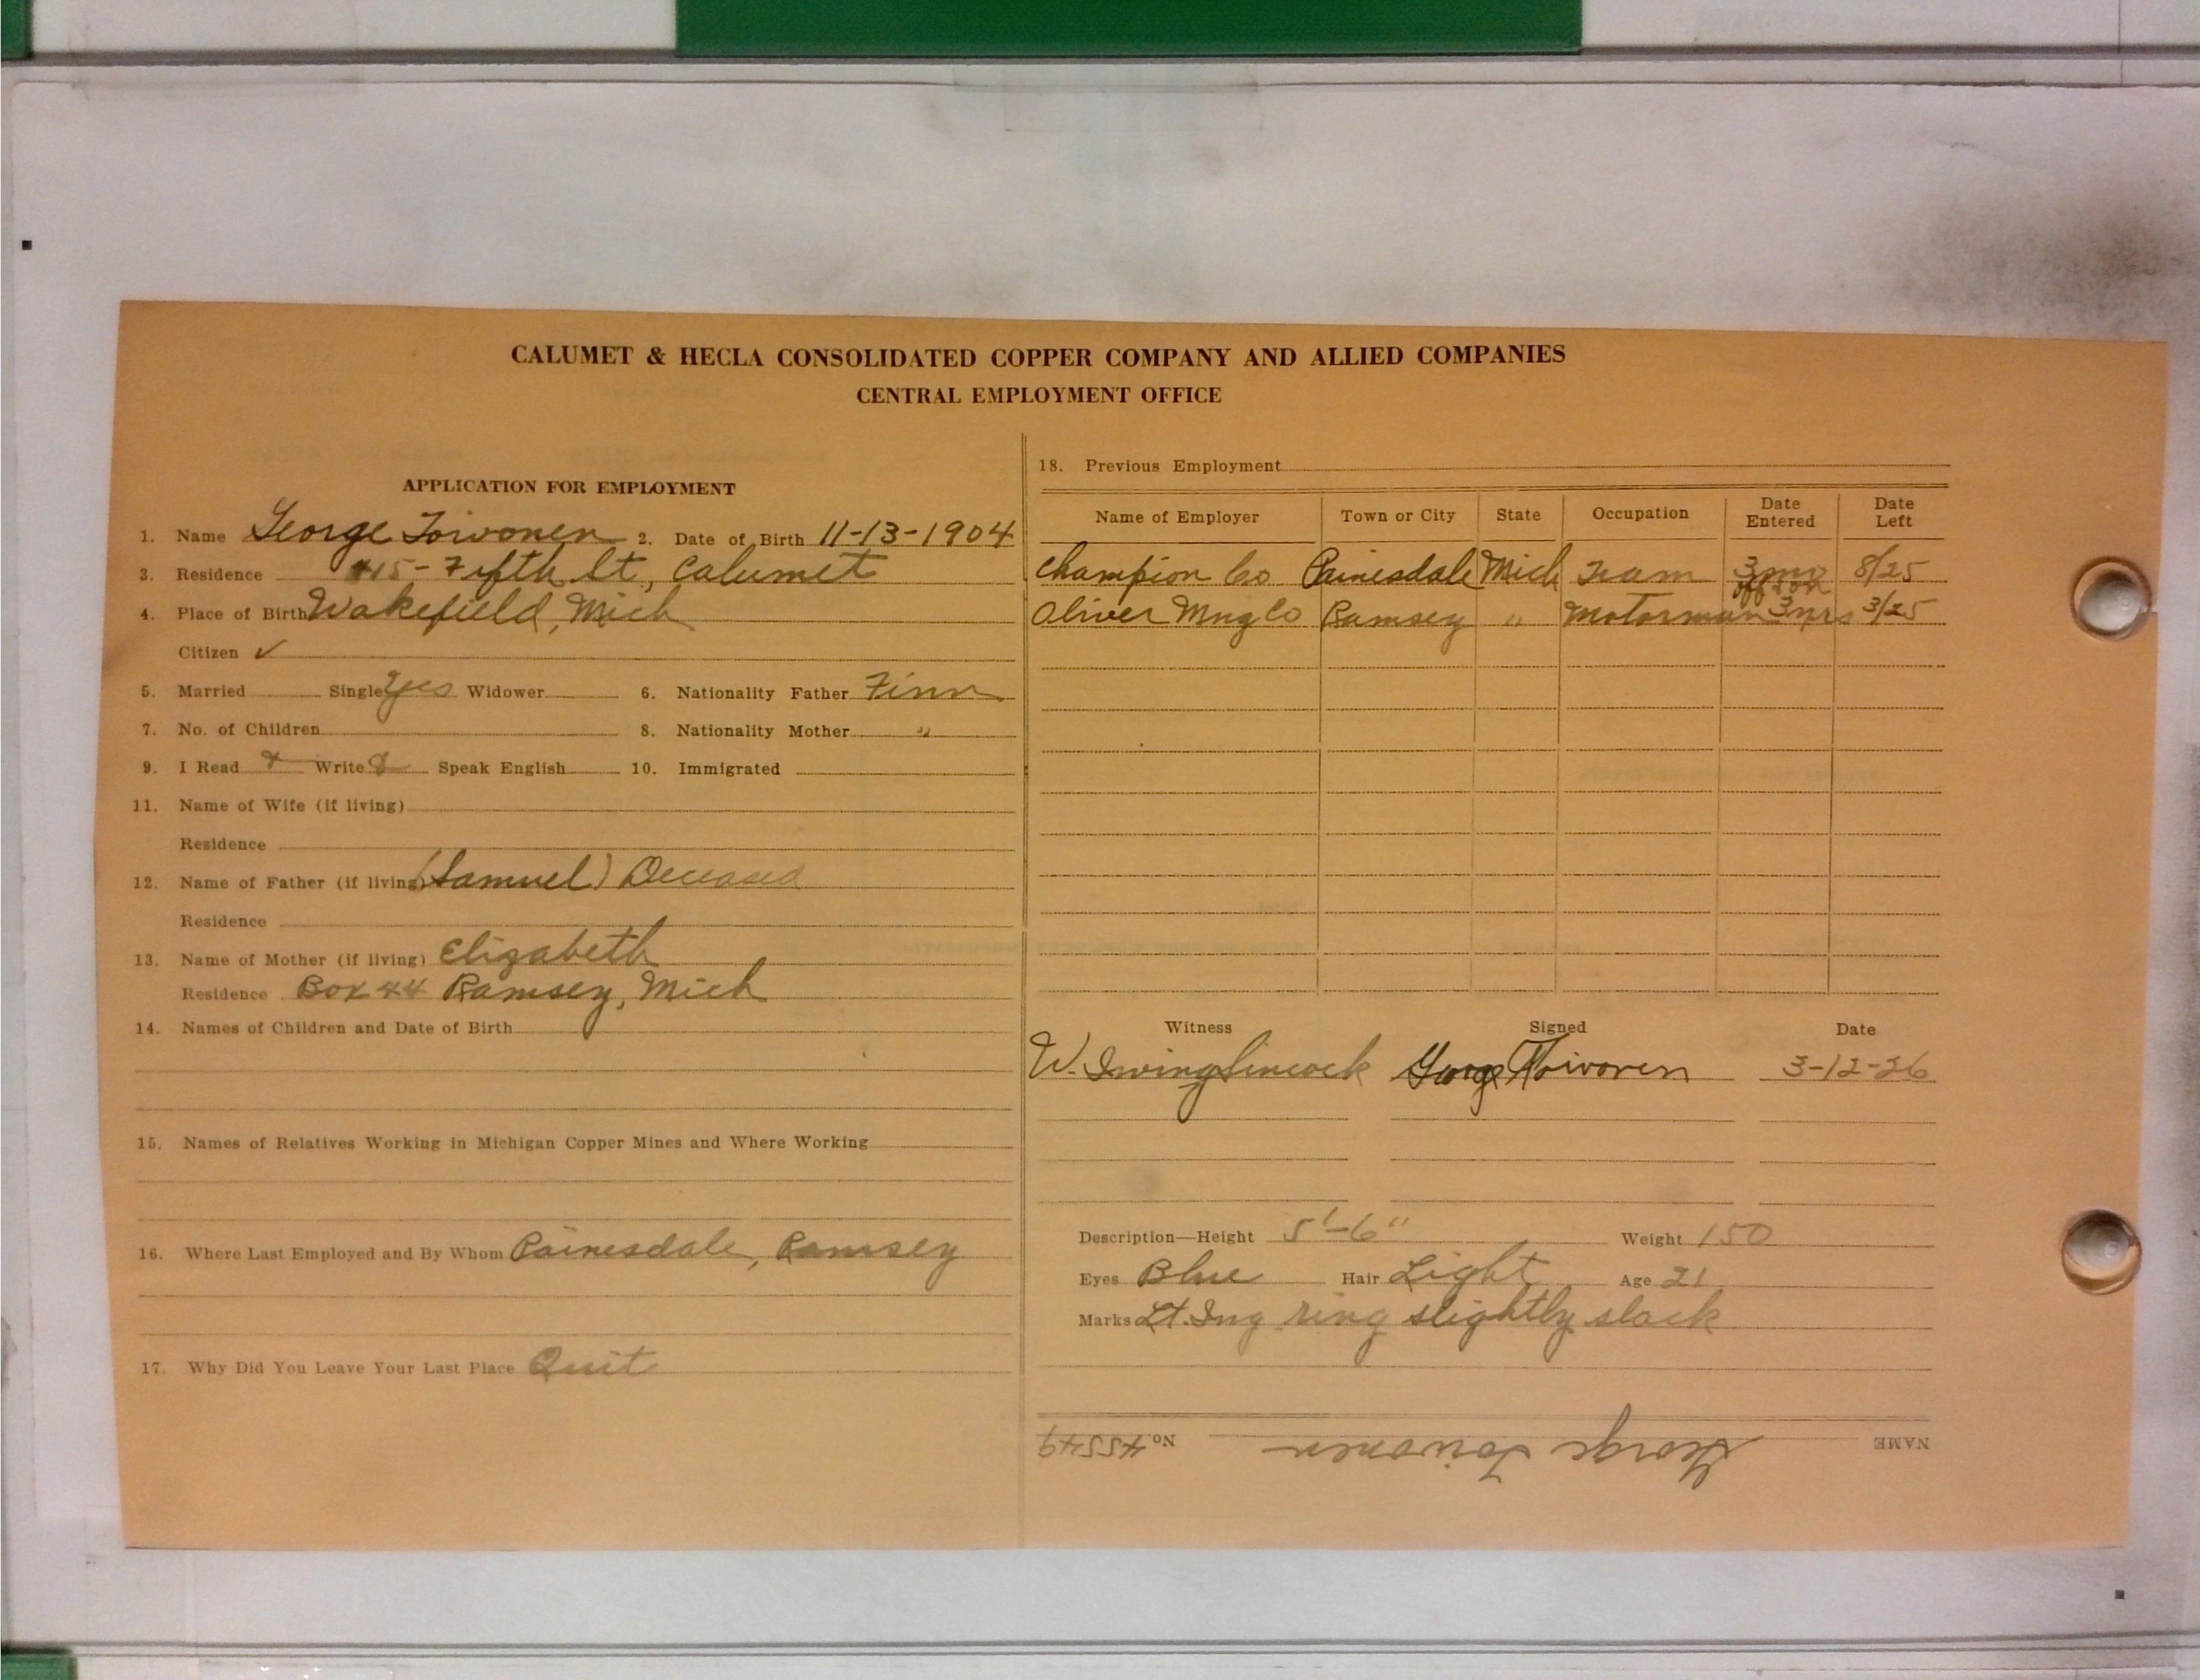 CALUMET & HECLA CONSOLIDATED COPPER COMPANY AND ALLIED COMPANIES
CENTRAL EMPLOYMENT OFFICE
APPLICATION FOR EMPLOYMENT
1. Name George Toivonen 2. Date of Birth 11-13-1904
3. Residence 415 - Fifth St, Calumet
4. Place of Birth Wakefield, Mich
Citizen ✓
5. Married Single yes Widower 6. Nationality Father Finn
7. No. of Children 8. Nationality Mother "
9. I Read Write Speak English 10. Immigrated
11. Name of Wife (if living)
Residence
12. Name of Father (if living) (Samuel) Deceased
Residence
13. Name of Mother (if living) Elizabeth
Residence Box 44 Ramsey, Mich
14. Names of Children and Date of Birth
15. Names of Relatives Working in Michigan Copper Mines and Where Working
16. Where Last Employed and By Whom Painesdale, Ramsey
17. Why Did You Leave Your Last Place Quit
18. Previous Employment
Name of Employer Town or City State Occupation Date Entered Date Left
Champion Co Painesdale Mich Tram 3 mo off & on 8/25
Oliver Mng Co Ramsey " Motorman 3 yrs 3/25
Witness Signed Date
W. Irving George Toivonen 3-12-26
Description—Height 5'-6" Weight 150
Eyes Blue Hair Light Age 21
Marks Lt. Ing ring slightly slack
NAME George Toivonen No 45549